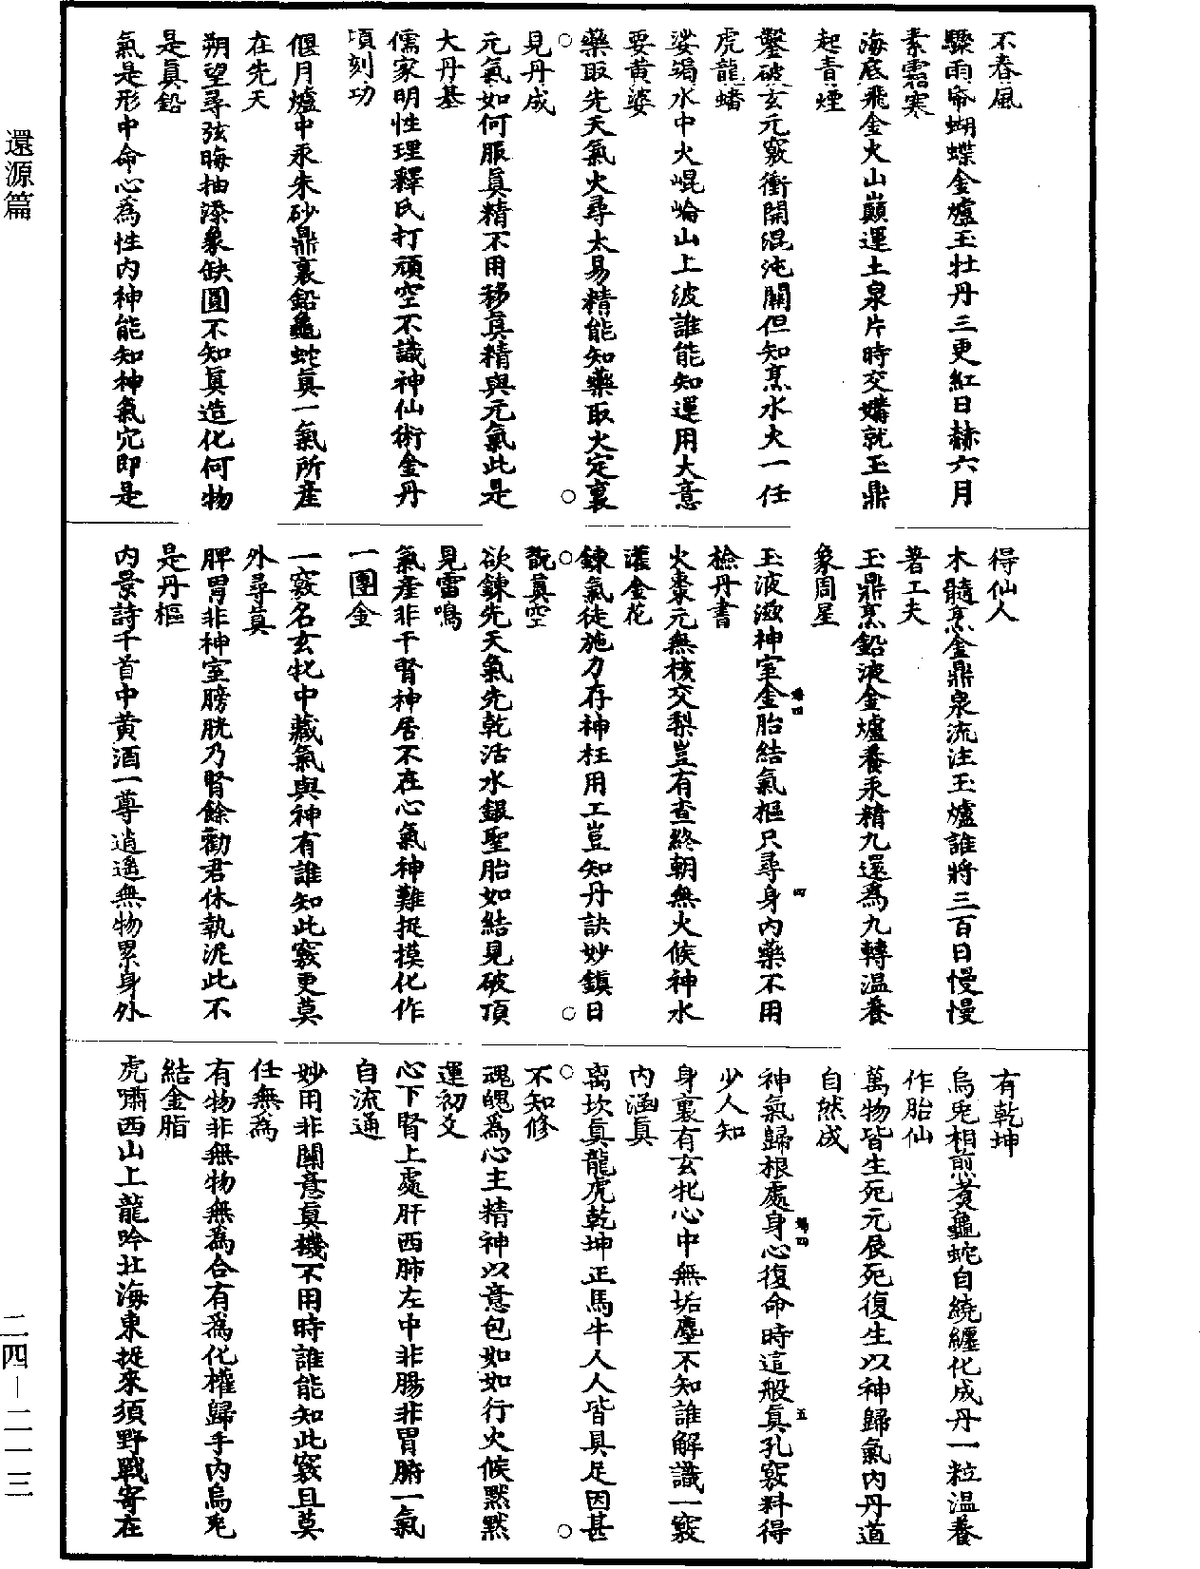 不春風
驟雨帋蝴蝶金爐玉牡丹三更紅日赫六月
素霜寒
海底飛金火山巔運土泉片時交媾就玉鼎
起青煙
鑿破玄元竅衝開混沌關但知烹水火一任
虎龍蟠
娑竭水中火崐崘山上波誰能知運用大意
要黃婆
藥取先天氣火尋太易精能知藥取火定裏
見丹成
元氣如何服真精不用移真精與元氣此是
大丹基
儒家明性理釋氏打頑空不識神仙術金丹
頃刻功
偃月爐中汞朱砂鼎裏鉛龜蛇真一氣所產
在先天
朔望尋弦晦抽添象缺圓不知真造化何物
是真鉛
氣是形中命心為性內神能知神氣穴即是
得仙人
木髓烹金鼎泉流注玉爐誰將三百日慢慢
著工夫
玉鼎烹鉛液金爐養汞精九還為九轉温養
象周星
玉液滋神室金胎結氣樞只尋身內藥不用
檢丹書
火棗元無核交梨豈有查終朝無火候神水
灌金花
鍊氣徒施力存神枉用工豈知丹訣妙鎮日
翫真空
欲鍊先天氣先乾活水銀聖胎如結見破頂
見雷鳴
氣產非干腎神居不在心氣神難捉摸化作
一團金
一竅名玄牝中藏氣與神有誰知此竅更莫
外尋真
脾胃非神室膀胱乃腎餘勸君休執泥此不
是丹樞
內景詩千首中黃酒一尊逍遙無物累身外
有乾坤
烏兎相煎煑龜蛇自繞纏化成丹一粒温養
作胎仙
萬物皆生死元辰死復生以神歸氣內丹道
自然成
神氣歸根處身心復命時這般真孔竅料得
少人知
身裏有玄牝心中無垢塵不知誰解識一竅
內涵真
离坎真龍虎乾坤正馬牛人人皆具足因甚
不知修
魂魄為心主精神以意包如如行火候默默
運初爻
心下腎上處肝西肺左中非腸非胃腑一氣
自流通
妙用非關意真機不用時誰能知此竅且莫
任無為
有物非無物無為合有為化權歸手內烏兎
結金脂
虎嘯西山上龍吟北海東捉來須野戰寄在
還源篇
二四—二一三